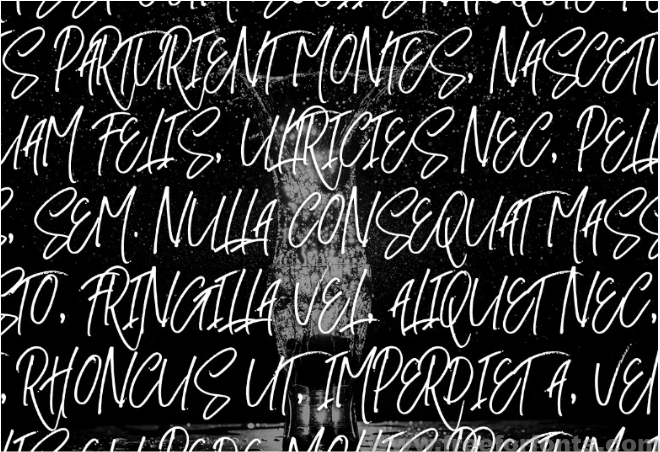 IS PARTURIENT MONTES, NASCETU
UAM FELIS, ULTRICIES NEC, PELL
S, SEM. NULLA CONSEQUAT MASS
STO, FRINGILLA VEL, ALIQUET NEC,
, RHONCUS UT, IMPERDIET A, VEN